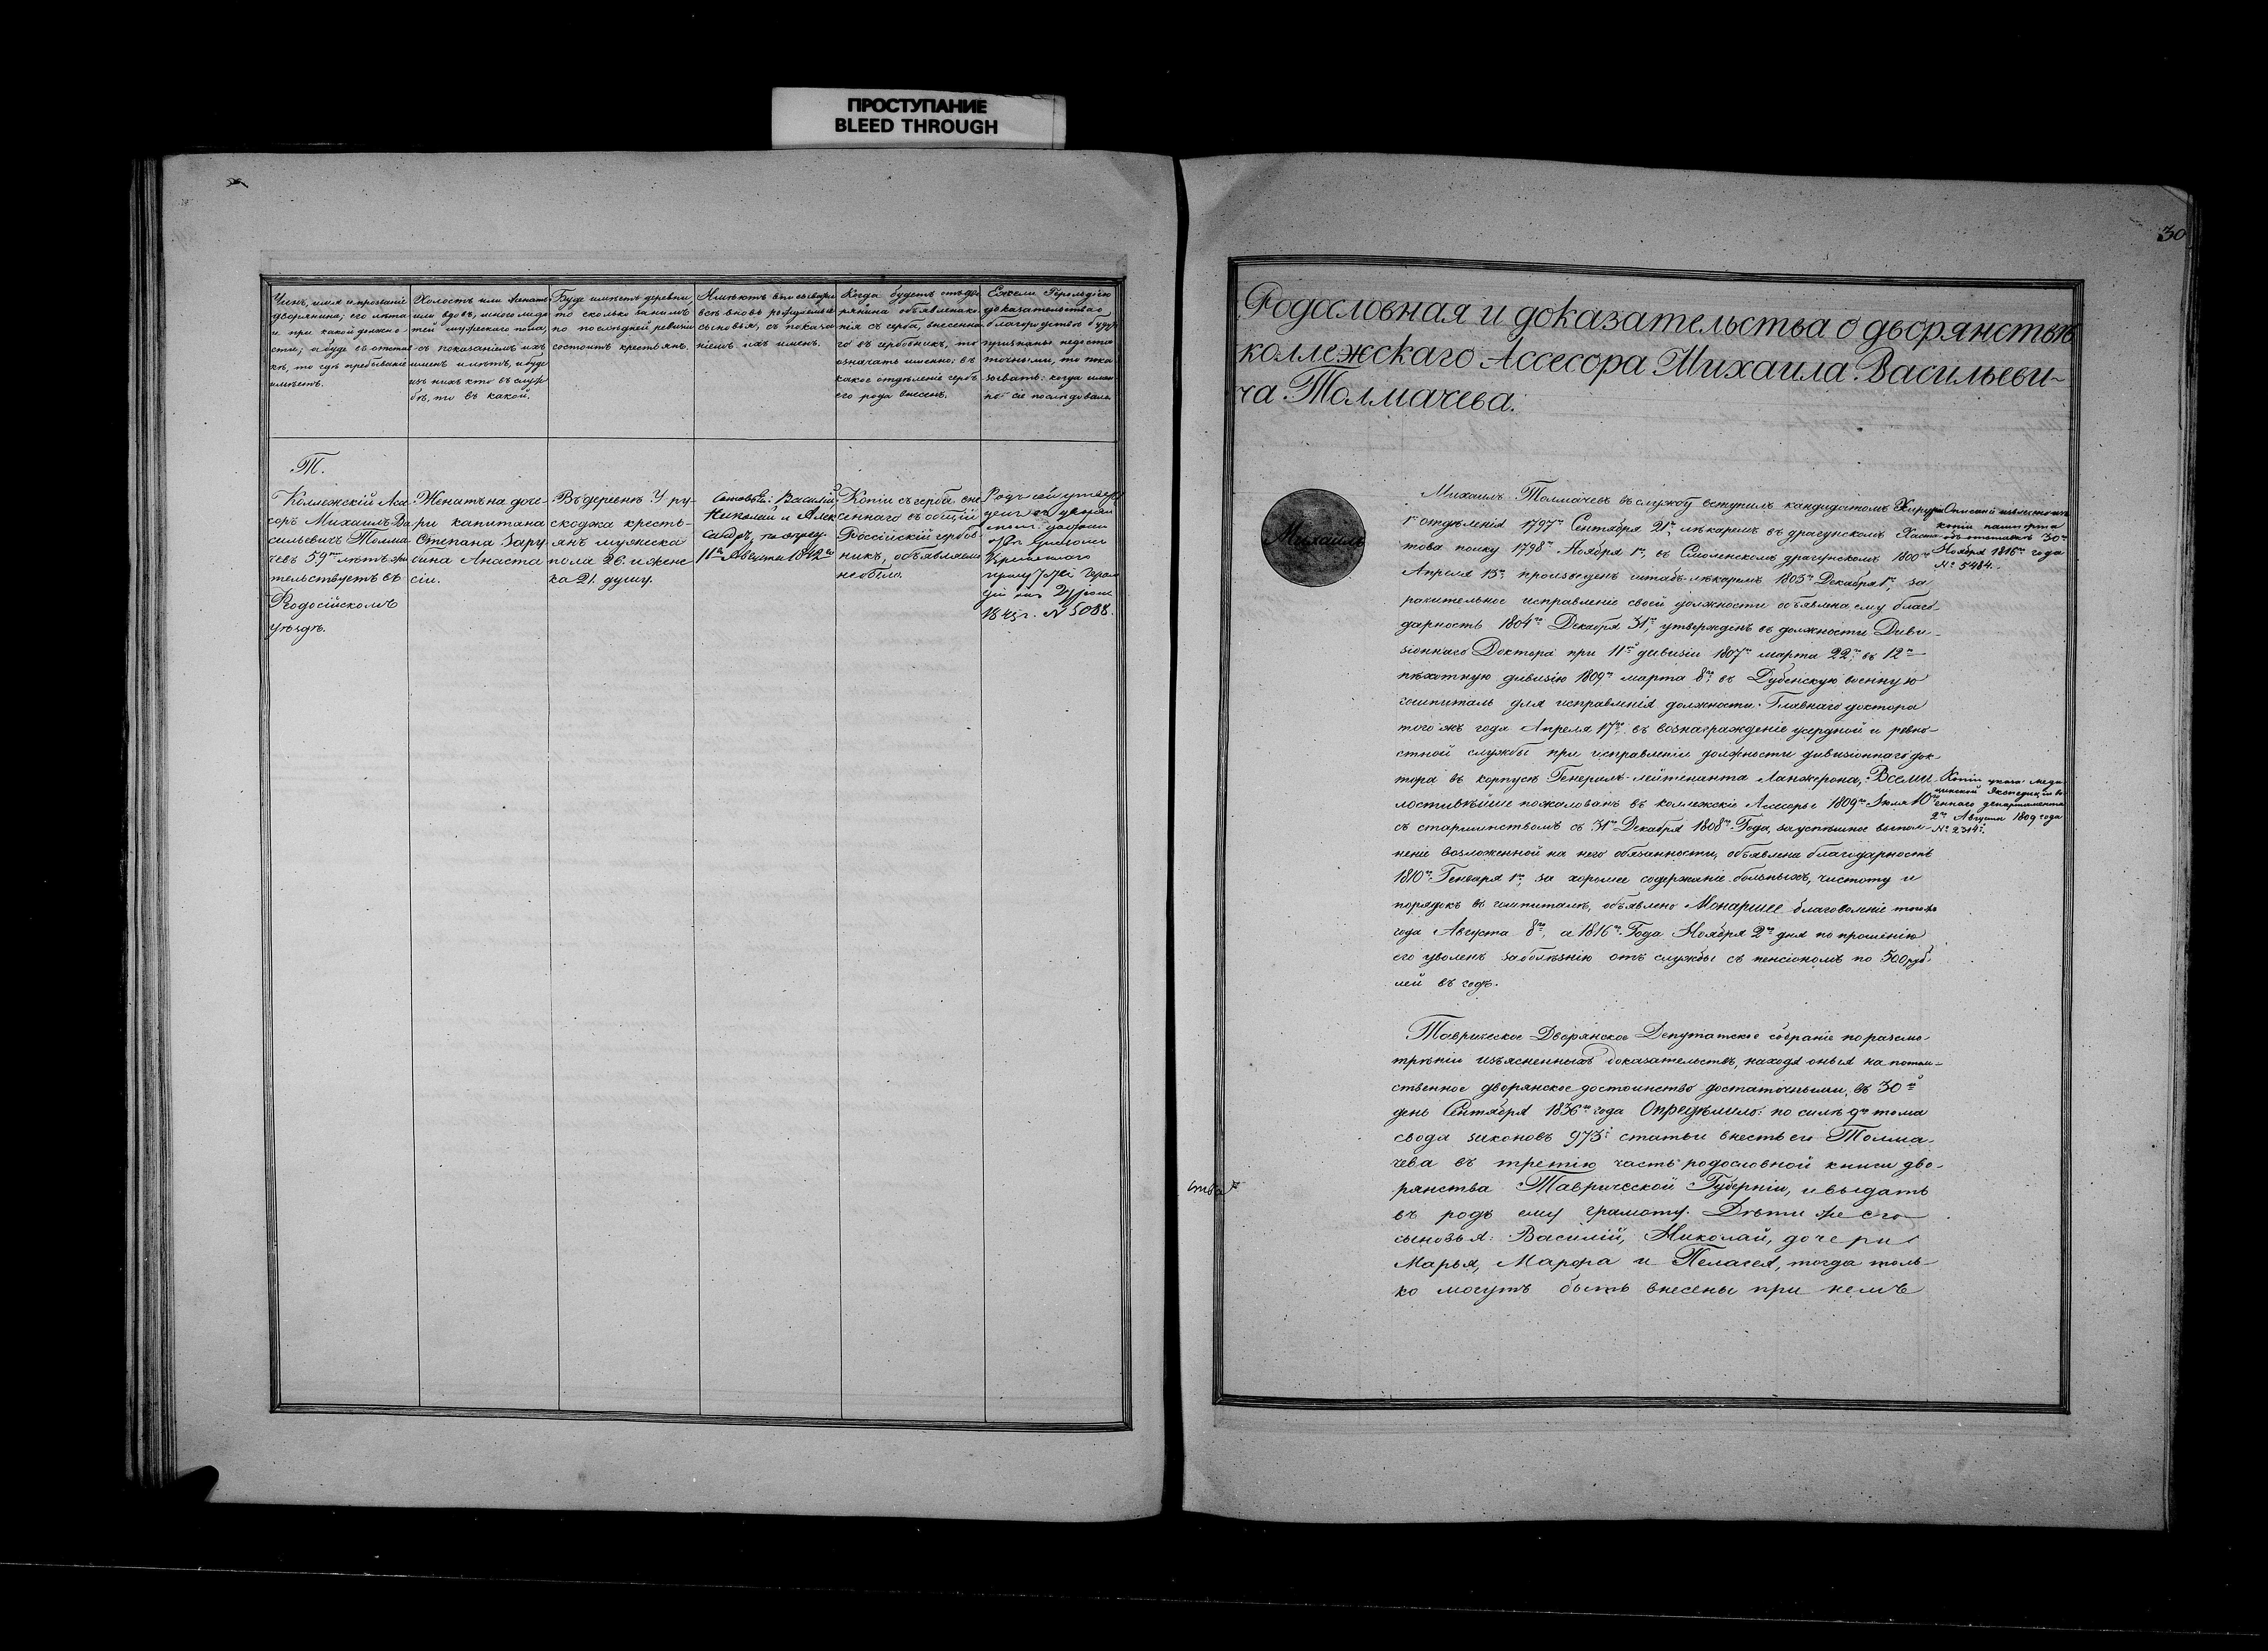 ПРОСТУПАНИЕ
BLEED THROUGH
30
Чинъ, имя и прозваніе
дворянина; его лѣта
и при какой должно-
сти; а буде въ отстав
кѣ, то гдѣ пребываніе
имѣетъ.
Холостъ или женатъ
или вдовъ, много ли де
тей мужескаго пола,
съ показаніемъ ихъ
именъ имѣетъ, и буде
изъ нихъ кто въ служ
бѣ, то въ какой.
Буде имѣетъ деревни,
то сколько за нимъ
по послѣдней ревизіи
состоитъ крестьянъ.
всѣ вновь рождаемые
сыновья, съ показа
ніемъ ихъ именъ.
Когда будетъ отъ дво
рянина объявлена ко-
пія съ герба, внесенна
го въ гербовникъ, то
означать именно: въ
какое отдѣленіе гербъ
его рода внесенъ.
Ежели Герольдіею
доказательства о
благородствѣ будутъ
признаны недоста
точными, то пока
зывать: когда имен
но сіе послѣдовало.
Т.
Коллежскій Асе
соръ Михаилъ Ва
сильевичъ Толма
чевъ 59 лѣтъ жи
тельствуетъ въ
Ѳеодосійскомъ
уѣздѣ.
Женатъ на доче-
ри капитана
Степана Зару
бина Анаста
сіи.
Въ деревнѣ Уру-
скоджа кресть-
янъ мужеска
пола 26. и женс-
ка 21. душу.
Сыновья: Василій,
Николай и Алек
сандръ, по опред.
11го Августа 1842го
Копіи съ герба вне
сеннаго въ общій
Россійскій гербов
никъ, объявляемо
не было.
Родъ сей утверж
денъ въ дворян
N 5088.
Родословная и доказательства о дворянствѣ
коллежскаго Ассесора Михаила Васильеви-
ча Толмачева.
Михаилъ
Михаилъ Толмачевъ въ службу вступилъ кандидатомъ Хирургіи
1го отдѣленія 1797го Сентября 21го, лѣкаремъ въ драгунскомъ Хаста
това полку 1798го Ноября 1го, въ Смоленскомъ драгунскомъ 1800го
Апреля 13го, произведенъ штабъ-лѣкаремъ 1803го Декабря 1го, за
рачительное исправленіе своей должности объявлена ему благо-
дарность 1804го Декабря 31го, утвержденъ въ должности Диви-
зіоннаго Доктора при 11й дивизіи 1807го марта 22го, въ 12ю
пѣхотную дивизію 1809го марта 8го, въ Дубенскую военную
гошпиталь для исправленія должности Главнаго доктора
того жъ года Апреля 17го, въ вознагражденіе усердной и ревно-
стной службы при исправленіи должности дивизіоннаго док-
тора въ корпусѣ Генералъ-лейтенанта Ланжерона, Всеми
лостивѣйше пожалованъ въ коллежскіе Ассесоры 1809го Іюля 10го
съ старшинствомъ съ 31го Декабря 1808го Года, за успѣшное выпол-
неніе возложенной на него обязанности, объявлена благодарность
1810го Генваря 1го, за хорошее содержаніе больныхъ, чистоту и
порядокъ въ гошпиталѣ, объявлено Монаршее благоволеніе тогожъ
года Августа 8го, а 1816го Года Ноября 2го дня по прошенію
его уволенъ за болѣзнію отъ службы съ пенсіономъ по 500 руб-
лей въ годъ.
копіи пашпорта
объ отставкѣ 30го
Ноября 1816го года
№ 5484.
Копіи указа меди
цинской Экспедиціи во
еннаго департамента
2го Августа 1809 года
№ 2314.
Таврическое Дворянское Депутатское собраніе по разсмо-
трѣніи изъясненныхъ доказательствъ, находя оныя на потом-
ственное дворянское достоинство достаточными, въ 30й
день Сентября 1836го года Опредѣлило: по силѣ 9го тома
свода законовъ 973й статьи внесть его Толма-
чева въ третію часть родословной книги дво-
рянства Таврической Губерніи, и выдать
въ родъ ему грамоту. Дѣти же его
сыновья: Василій, Николай, дочери
Марья, Марфа и Пелагея, тогда толь-
ко могутъ быть внесены при немъ